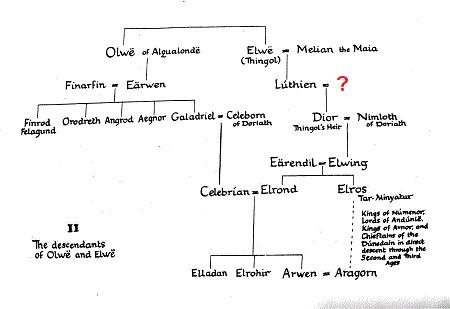 Olwë of Alqualondë
Elwë = Melian the Maia
(Thingol)
Finarfin = Eärwen
Lúthien = ?
Finrod Felagund
Orodreth Angrod Aegnor Galadriel = Celeborn of Doriath
Dior = Nimloth
Thingol's Heir
of Doriath
Eärendil = Elwing
Celebrían = Elrond
Elros
Tar-Minyatur
Kings of Númenor,
Lords of Andúnië,
Kings of Arnor, and
Chieftains of the
Dúnedain in direct
descent through the
Second and Third
Ages
II
The descendants
of Olwë and Elwë
Elladan Elrohir Arwen = Aragorn